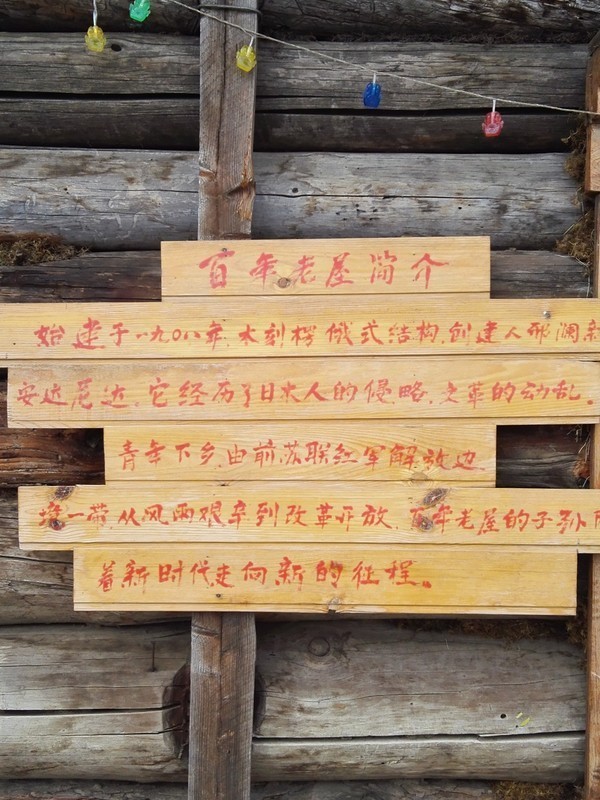 百年老屋简介
始建于一九〇八年.木刻楞俄式结构.创建人邢润
安达尼达.它经历了日本人的侵略.文革的动乱.
青年下乡.由前苏联红军解放边
一带.从风雨艰辛到改革开放.百年老屋的子孙
着新时代走向新的征程。